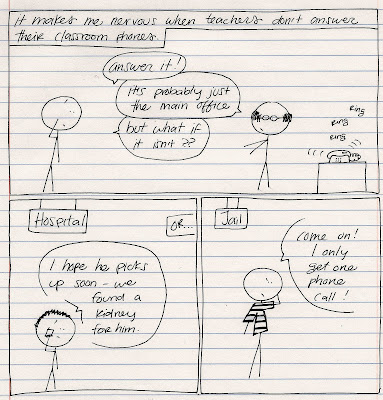 It makes me nervous when teachers don't answer
their classroom phones.
answer it!
it's probably just
the main office
but what if
it isn't??
RING
RING
RING
Hospital
OR...
I hope he picks
up soon - we
found a
kidney
for him.
Jail
come on!
I only
get one
phone
call!